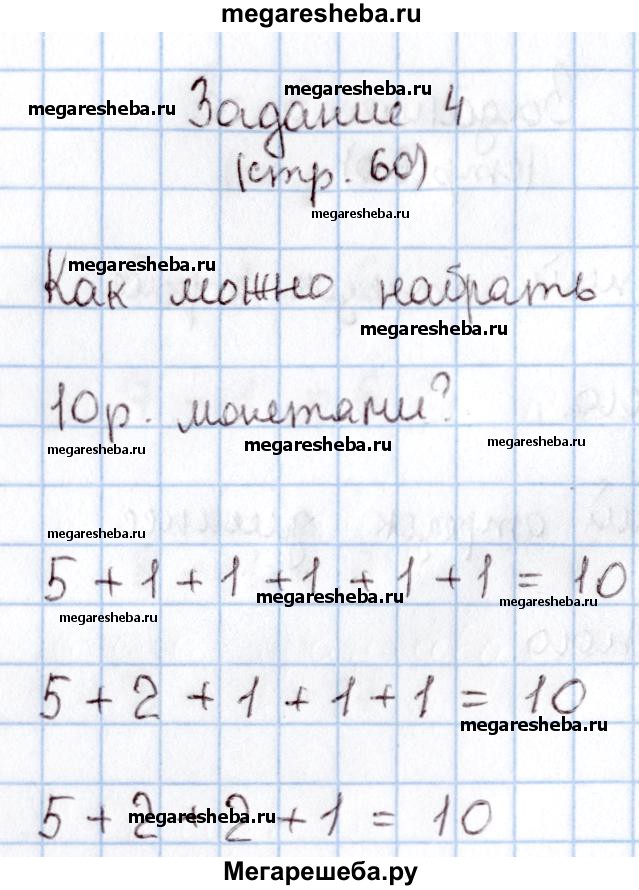 megaresheba.ru
megaresheba.ru
megaresheba.ru
Задание 4
(стр. 60)
megaresheba.ru
megaresheba.ru
Как можно набрать
megaresheba.ru
10р. монетами?
megaresheba.ru
megaresheba.ru
megaresheba.ru
megaresheba.ru
5 + 1 + 1 + 1 + 1 + 1 = 10
megaresheba.ru
megaresheba.ru
megaresheba.ru
5 + 2 + 1 + 1 + 1 = 10
megaresheba.ru
5 + 2 + 2 + 1 = 10
megaresheba.ru
Мегарешеба.ру